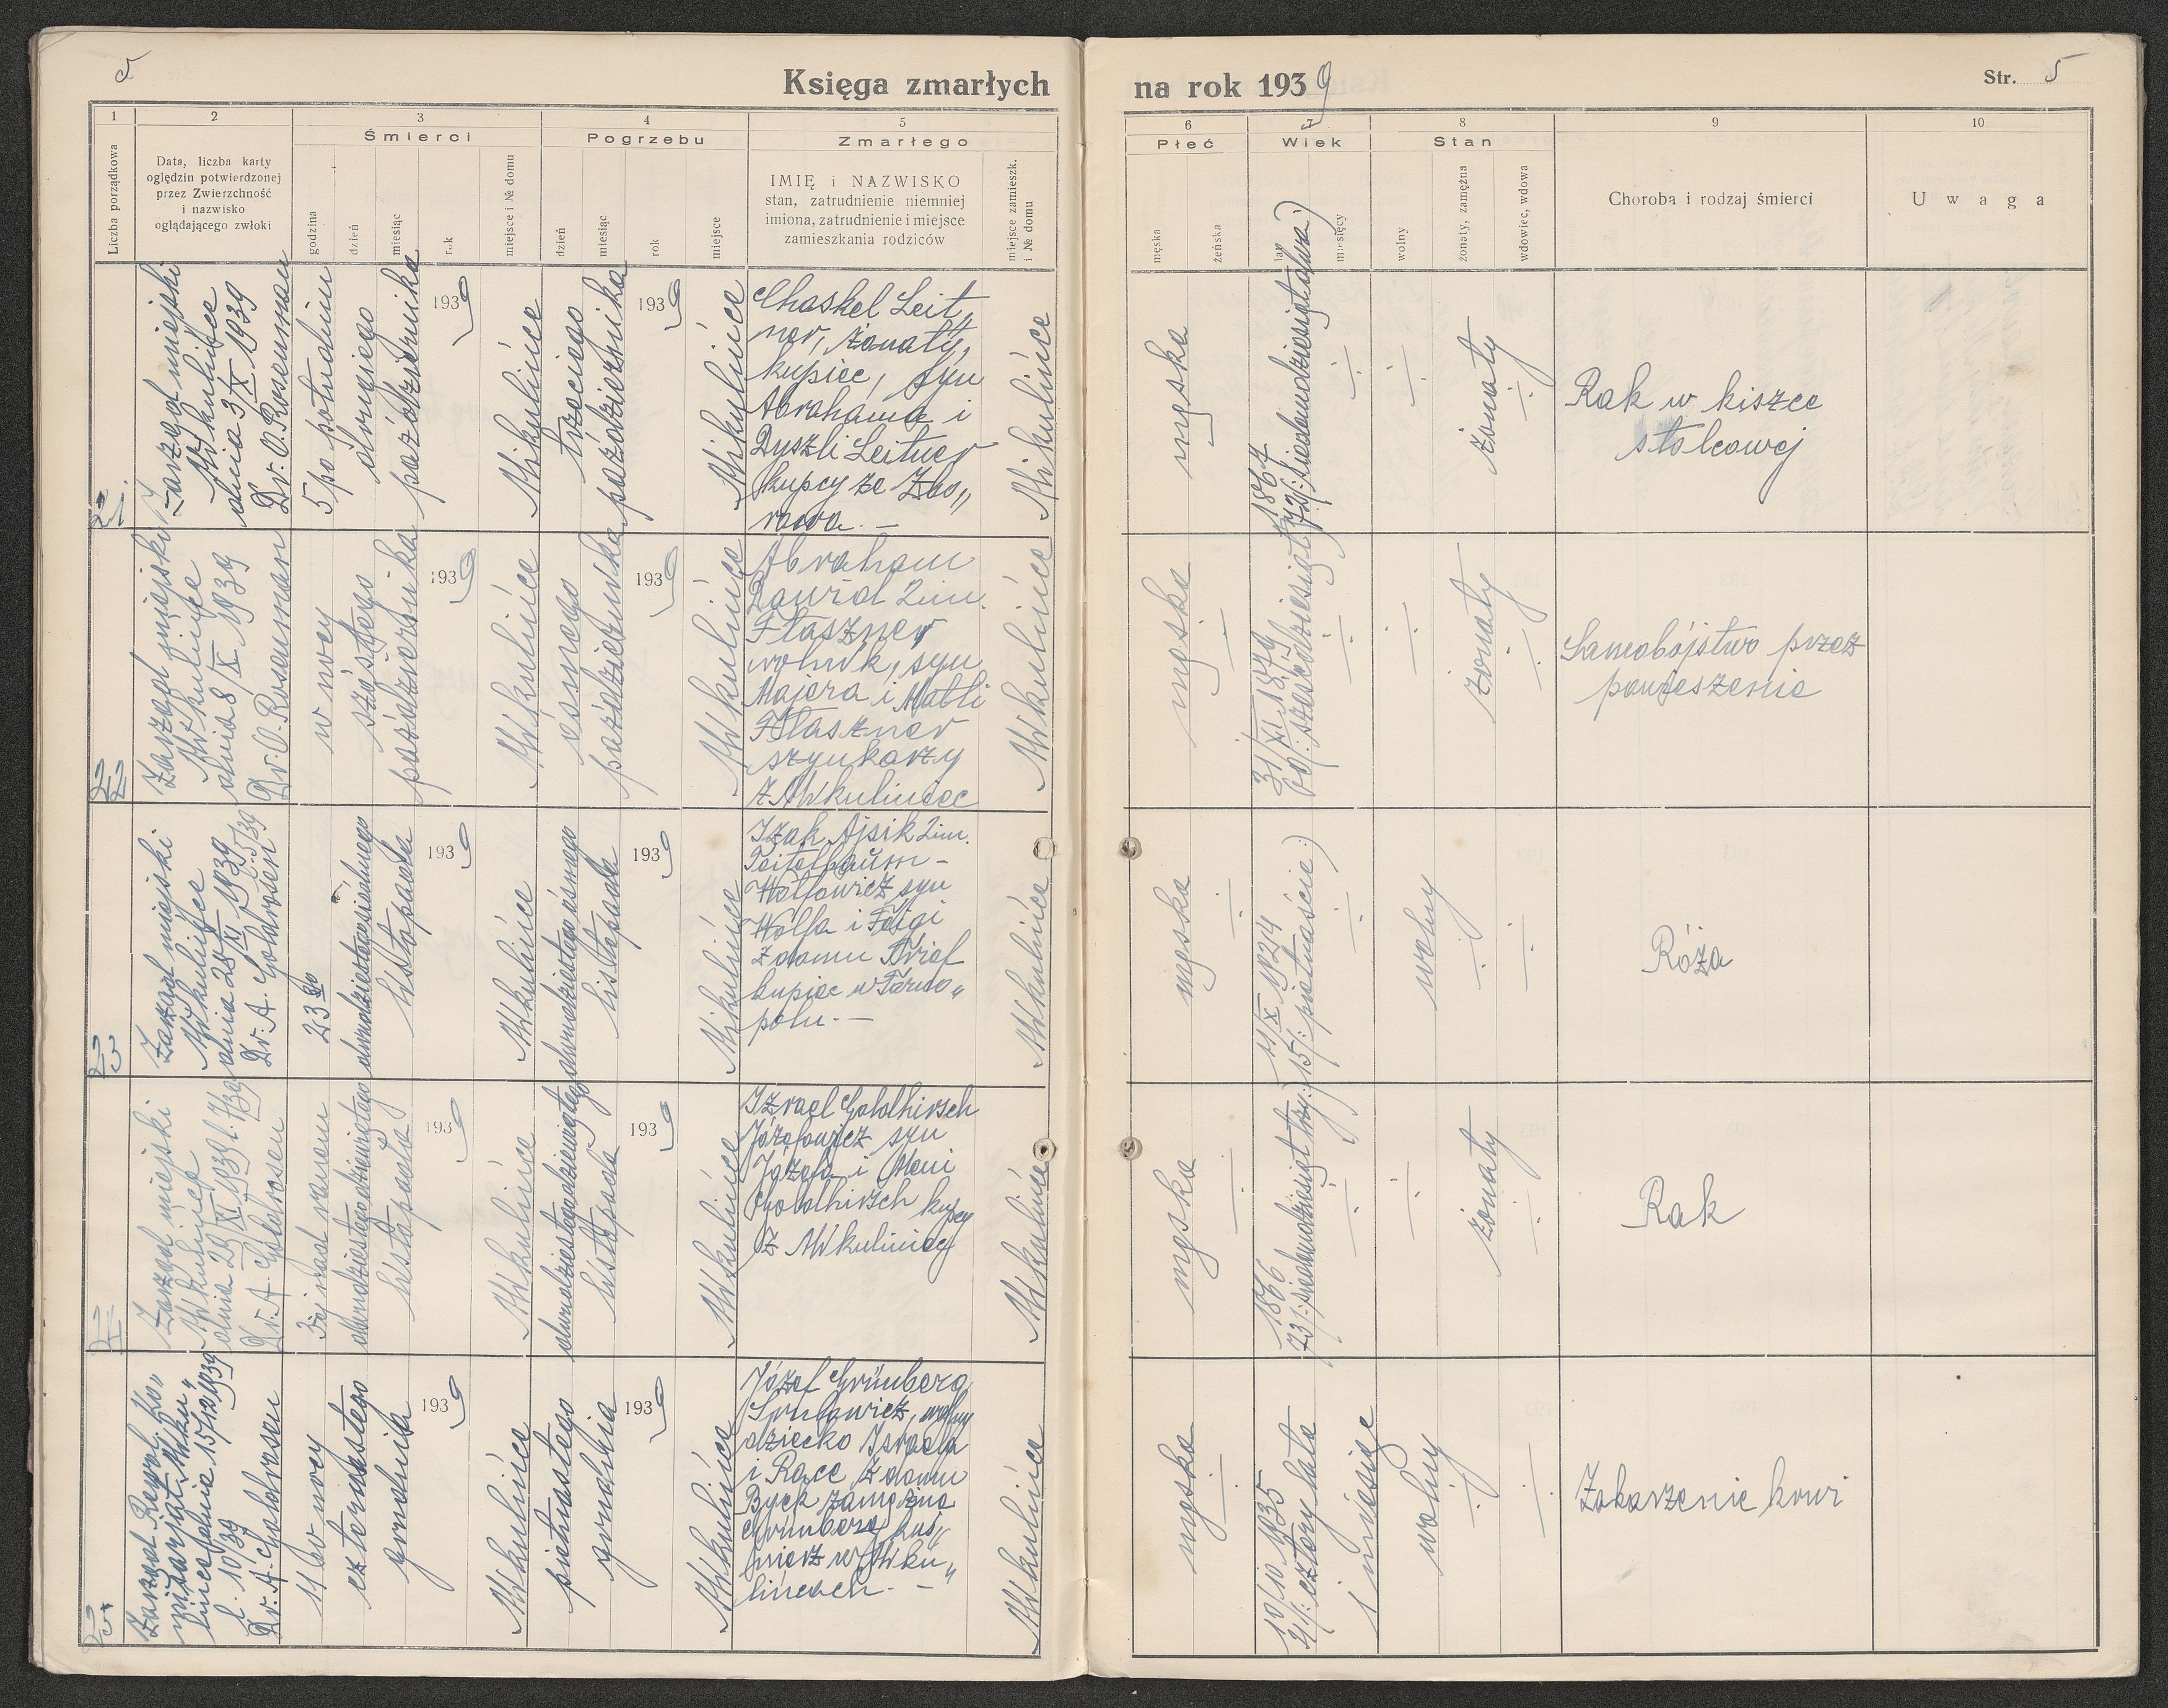 5
Księga zmarłych
na rok 1939
Str. 5
1
2
3
4
5
6
7
8
9
10
Liczba porządkowa
Data, liczba karty
oględzin potwierdzonej
przez Zwierzchność
i nazwisko
oglądającego zwłoki
Śmierci
godzina
dzień
miesiąc
rok
miejsce i № domu
Pogrzebu
dzień
miesiąc
rok
miejsce
Zmarłego
IMIĘ i NAZWISKO
stan, zatrudnienie niemniej
imiona, zatrudnienie i miejsce
zamieszkania rodziców
miejsce zamieszk.
i № domu
Płeć
męska
żeńska
Wiek
lat
miesięcy
Stan
wolny
żonaty, zamężna
wdowiec, wdowa
Choroba i rodzaj śmierci
Uwaga
21.
Zarząd miejski
Mikulińce
dnia 3/X 1939
Dr. O. Rosenman
5 po południu
drugiego
października
1939
Mikulińce
trzeciego
października
1939
Mikulińce
Chaskel Leit„
ner, żonaty,
kupiec, syn
Abrahama i
Dyszli Leitner
kupcy ze Zbo„
rowa. —
Mikulińce
męska
1867
72/: siedemdziesiąt dwa:)
÷
÷
żonaty
÷
Rak w kiszce
stolcowej
22
Zarząd miejski
Mikulińce
dnia 8/X 1939
Dr. O. Rosenman
w nocy
szóstego
października
1939
Mikulińce
ósmego
października
1939
Mikulińce
Abraham
Dawid 2im.
Flaszner
rolnik, syn
Majera i Matli
Flaszner
szynkarzy
z Mikuliniec
Mikulińce
męska
÷
31/XI 1879
60/: sześćdziesiąt:)
÷
÷
żonaty
÷
Samobójstwo przez
powieszenie
23
Zarząd miejski
Mikulińce
dnia 28/XI 1939
l. 5/39
Dr. A. Goldrosen
23 30
dwudziestegosiódmego
listopada
1939
Mikulińce
dwudziestegoósmego
listopada
1939
Mikulińce
Izak Ajsik 2im.
Teitelbaum -
Wolfowicz syn
Wolfa i Fajgi
z domu Brief
kupiec w Tarno„
polu. —
Mikulińce
męska
÷
11/X 1924
15/: piętnaście:)
÷
wolny
÷
÷
Róża
Zarząd miejski
Mikulińce
dnia 29/XI 1939 l. 7/39
Dr. A. Goldrosen
3ej nad ranem
dwudziestegodziewiątego
listopada
1939
Mikulińce
dwudziestegodziewiątego
listopada
1939
Mikulińce
Izrael Goldhirsch
Józefowicz syn
Józefa i Meni
Goldhirsch kupcy
z Mikuliniec
Mikulińce
męska
÷
1866
73/: siedemdziesiąt trzy:)
÷
÷
żonaty
÷
Rak
Zarząd Rewol. Ko„
mitarjat. Miku„
lińce dnia 15/12 1939
l. 10/39
Dr. A. Goldrosen
11 w nocy
czternastego
grudnia
1939
Mikulińce
piętnastego
grudnia
1939
Mikulińce
Józef Grünberg
Srulowicz, wolny
dziecko Israela
i Race z domu
Byck zamężna
Grünberg kuś„
nierz w Miku„
lińcach. —
Mikulińce
męska
÷
10/10 1935
4/: cztery lata
i miesiące
wolny
÷
÷
Zakarzenie krwi